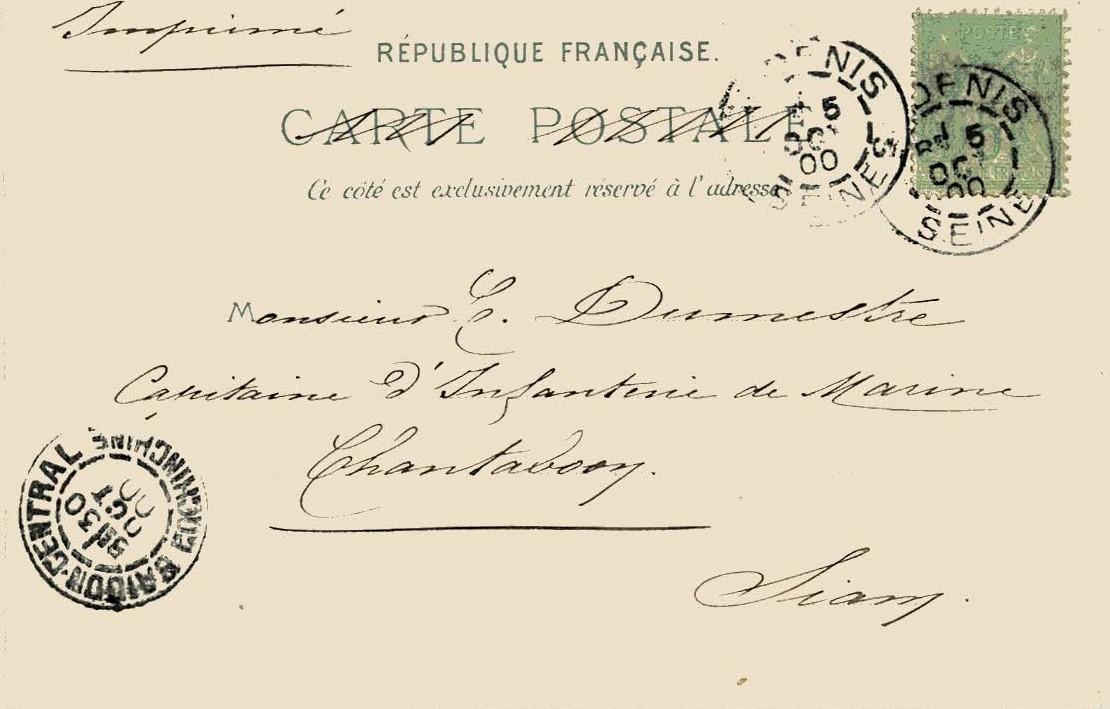 Imprimé
RÉPUBLIQUE FRANÇAISE.
CARTE POSTALE
Ce côté est exclusivement réservé à l'adresse
POSTES
DENIS
5
OCT
00
SEINE
DENIS
5
OCT
00
SEINE
Monsieur E. Dumestre
Capitaine d'Infanterie de Marine
Chantaboon.
Siam.
SAIGON-CENTRAL COCHINCHINE
30
OCT
00